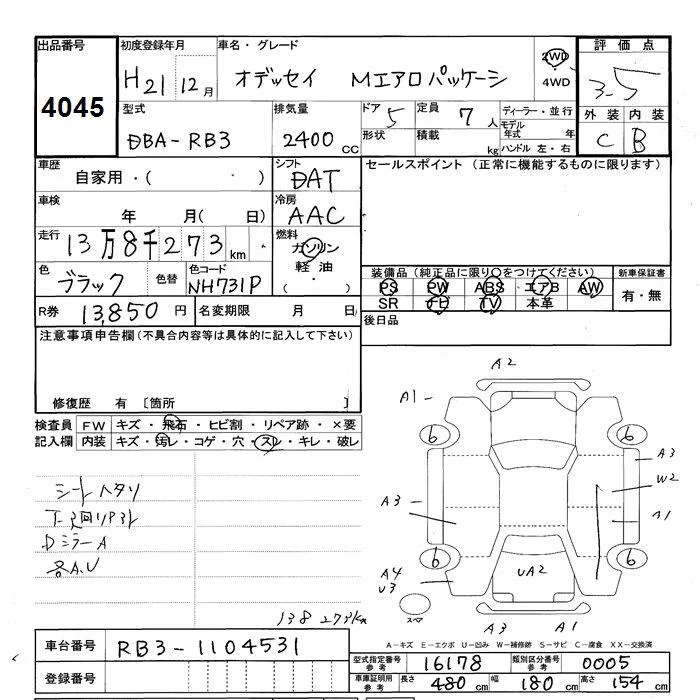 出品番号
4045
初度登録年月
H21 12月
車名・グレード
オデッセイ Mエアロパッケージ
2WD
4WD
評価点
3.5
外装 内装
C B
型式
DBA-RB3
排気量
2400cc
ドア 5
形状
定員 7人
積載 kg
ディーラー・並行
モデル年式 年
ハンドル 左・右
車歴
自家用・( )
シフト
DAT
セールスポイント(正常に機能するものに限ります)
車検
年 月( 日)
冷房
AAC
走行
13万8千273km
燃料
ガソリン
軽油
( ・ )
色
ブラック
色替
色コード
NH731P
装備品(純正品に限り○をつけてください)
PS PW ABS エアB AW
SR ナビ TV 本革
新車保証書
有・無
R券 13,850円
名変期限 月 日
後日品
注意事項申告欄(不具合内容等は具体的に記入して下さい)
修復歴 有 〔箇所 〕
検査員記入欄
FW キズ・飛石・ヒビ割・リペア跡・×要
内装 キズ・汚レ・コゲ・穴・スレ・キレ・破レ
シートヘタリ
DミラーA
各A.U
138 273km
A2
A1
6
6
A3
W2
A3
A1
6
6
UA2
A4
U3
スペア
A3
A1
A-キズ E-エクボ U-凹み W-補修跡 S-サビ C-腐食 XX-交換済
車台番号 RB3-1104531
登録番号
型式指定番号参考 16178
類別区分番号参考 0005
車庫証明用参考 長さ 480cm 幅 180cm 高さ 154cm